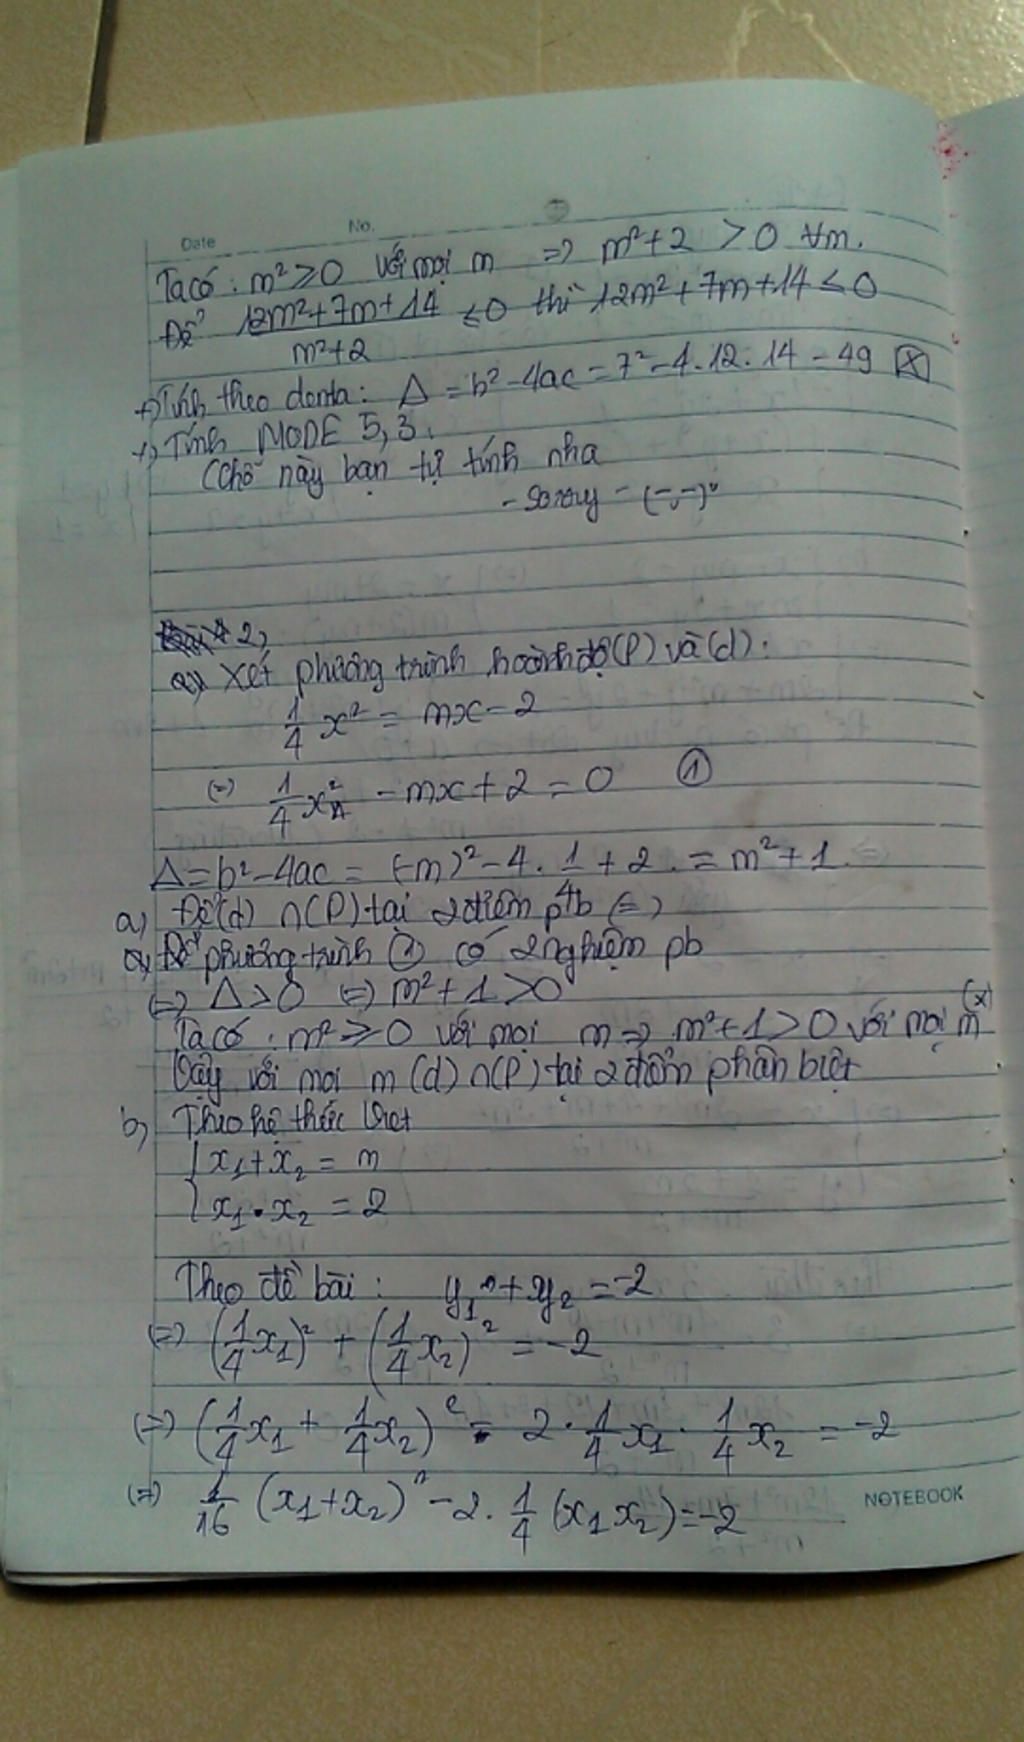 Date No.
Ta có : m² ≥ 0 với mọi m => m²+2 > 0 ∀m.
Để (12m²+7m+14)/(m²+2) ≤ 0 thì 12m²+7m+14 ≤ 0
+) Tính theo denta : Δ = b²-4ac = 7²-4.12.14 = 49
+) Tính MODE 5,3.
(Chỗ này bạn tự tính nha
- Sorry -
2,
a) Xét phương trình hoành độ (P) và (d) :
1/4 x² = mx - 2
(=) 1/4 x² - mx + 2 = 0 ①
Δ = b²-4ac = (-m)²-4. 1/4 + 2. = m²+1.
a) Để (d) ∩ (P) tại 2 điểm pb (=)
Để phương trình ① có 2 nghiệm pb
(=) Δ > 0 (=) m²+1 > 0
Ta có : m² ≥ 0 với mọi m => m²+1 > 0 với mọi m
Vậy với mọi m (d) ∩ (P) tại 2 điểm phân biệt
b) Theo hệ thức Viet
{ x₁+x₂ = m
{ x₁.x₂ = 2
Theo đề bài : y₁ + y₂ = -2
(=) (1/4 x₁)² + (1/4 x₂)² = -2
(=) (1/4 x₁ + 1/4 x₂)² - 2 . 1/4 x₁ . 1/4 x₂ = -2
(=) 1/16 (x₁+x₂)² - 2. 1/4 (x₁x₂) = -2
NOTEBOOK